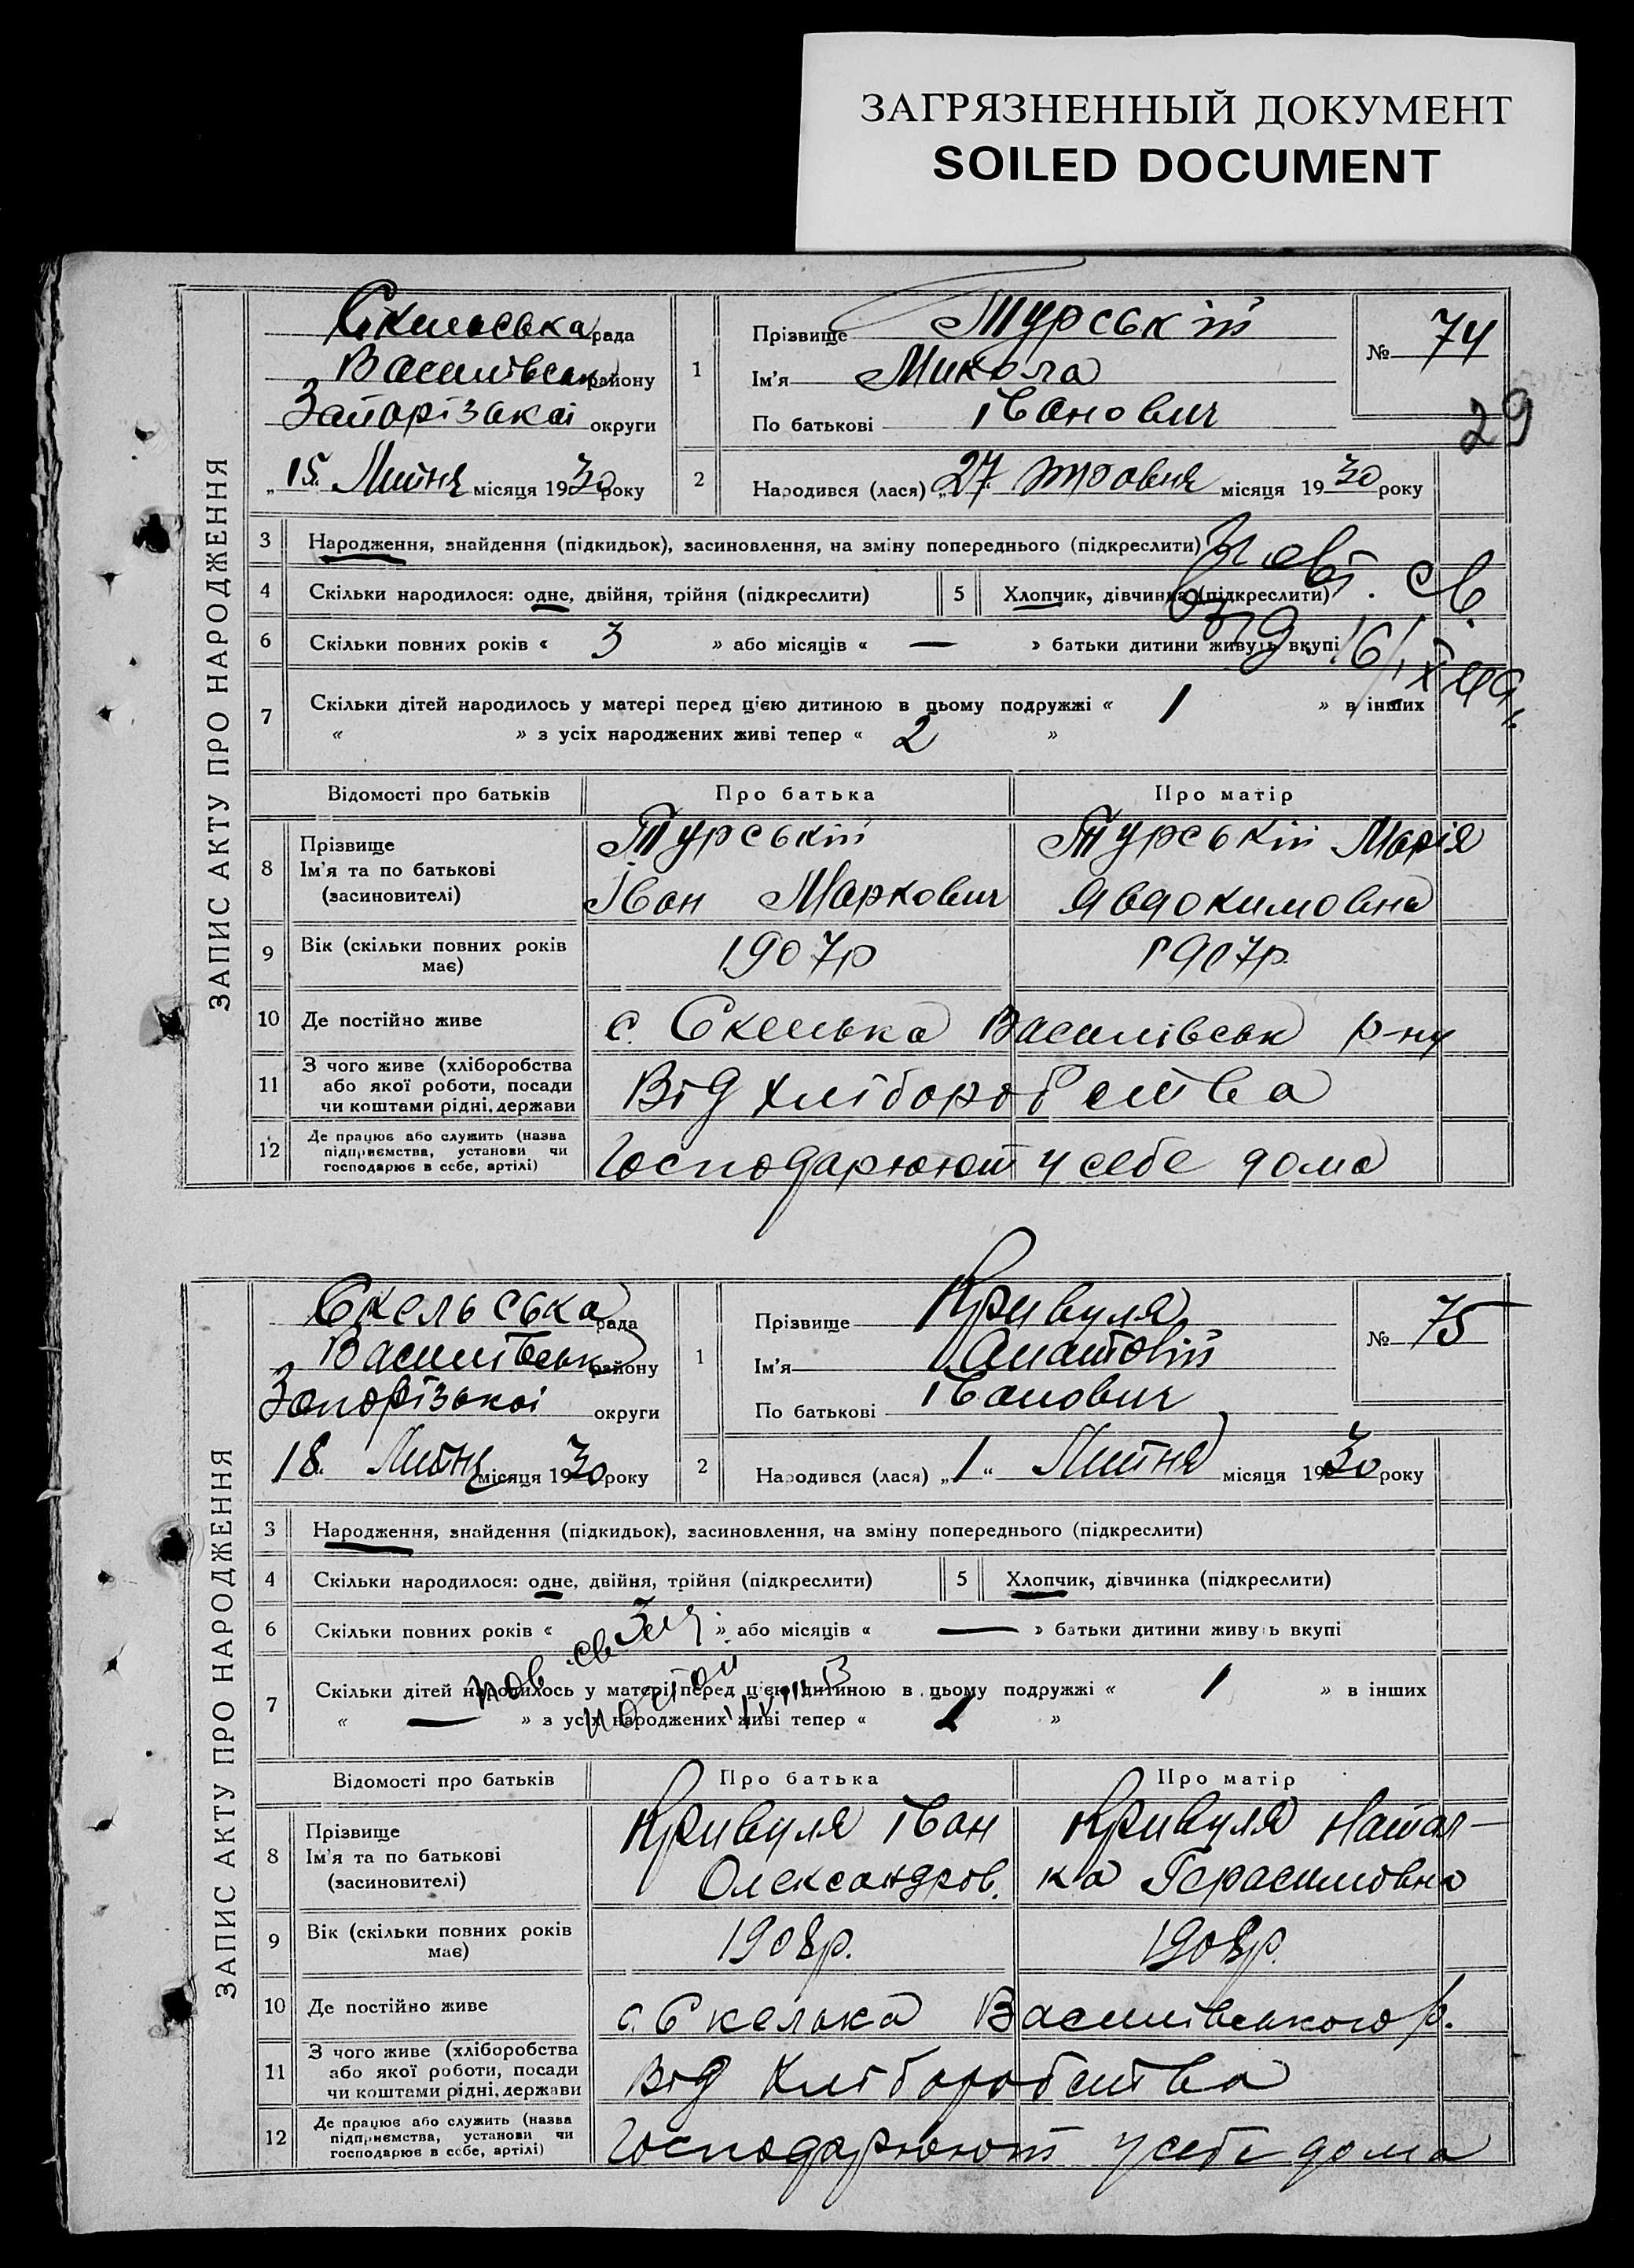 ЗАГРЯЗНЕННЫЙ ДОКУМЕНТ
SOILED DOCUMENT
ЗАПИС АКТУ ПРО НАРОДЖЕННЯ
Скельська рада
Василівськ району
Запорізької округи
„15“ Липня місяця 1930 року
1
Прізвище Турській
Ім'я Микола
По батькові Іванович
№ 74
29
2 Народився (лася) „27“ травня місяця 1930 року
3 Народження, знайдення (підкидьок), засиновлення, на зміну попереднього (підкреслити)
4 Скільки народилося: одне, двійня, трійня (підкреслити) 5 Хлопчик, дівчинка (підкреслити)
6 Скільки повних років « 3 » або місяців « — » батьки дитини живуть вкупі
7 Скільки дітей народилось у матері перед цією дитиною в цьому подружжі « 1 » в інших
« » з усіх народжених живі тепер « 2 »
Відомості про батьків Про батька Про матір
8 Прізвище Ім'я та по батькові (засиновителі)
Турській Іван Маркович
Турській Марія Явдокимовна
9 Вік (скільки повних років має) 1907р 1907р.
10 Де постійно живе с. Скелька Василівськ р-ну
11 З чого живе (хліборобства або якої роботи, посади чи коштами рідні, держави Від хліборобства
12 Де працює або служить (назва підприємства, установи чи господарює в себе, артілі) Господарюют у себе дома
ЗАПИС АКТУ ПРО НАРОДЖЕННЯ
Скельська рада
Василівськ району
Запорізької округи
18 Липня місяця 1930 року
1
Прізвище Кривуля
Ім'я Анатовій
По батькові Іванович
№ 75
2 Народився (лася) „1“ Липня місяця 1930 року
3 Народження, знайдення (підкидьок), засиновлення, на зміну попереднього (підкреслити)
4 Скільки народилося: одне, двійня, трійня (підкреслити) 5 Хлопчик, дівчинка (підкреслити)
6 Скільки повних років « 3 » або місяців « — » батьки дитини живуть вкупі
7 Скільки дітей народилось у матері перед цією дитиною в цьому подружжі « 1 » в інших
« — » з усіх народжених живі тепер « »
Відомості про батьків Про батька Про матір
8 Прізвище Ім'я та по батькові (засиновителі)
Кривуля Іван Олександров.
Кривуля Натал-ка Герасимовна
9 Вік (скільки повних років має) 1908р. 1908р.
10 Де постійно живе с. Скелька Василівського р.
11 З чого живе (хліборобства або якої роботи, посади чи коштами рідні, держави Від хліборобства
12 Де працює або служить (назва підприємства, установи чи господарює в себе, артілі) Господарюют у себе дома